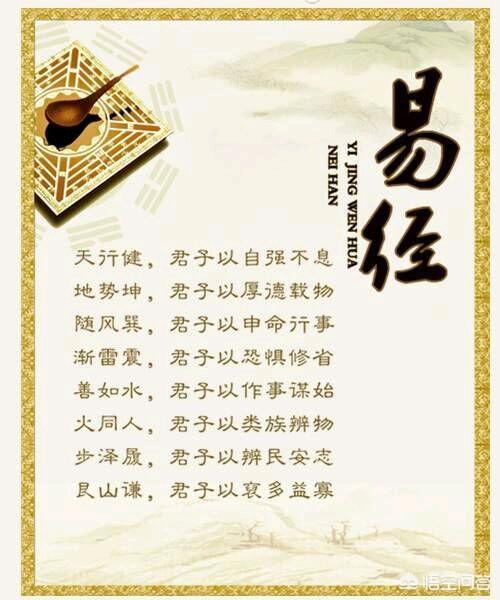 易经
YI JING WEN HUA
NEI HAN
天行健，君子以自强不息
地势坤，君子以厚德载物
随风巽，君子以申命行事
渐雷震，君子以恐惧修省
善如水，君子以作事谋始
火同人，君子以类族辨物
步泽履，君子以辨民安志
艮山谦，君子以裒多益寡
悟空问答